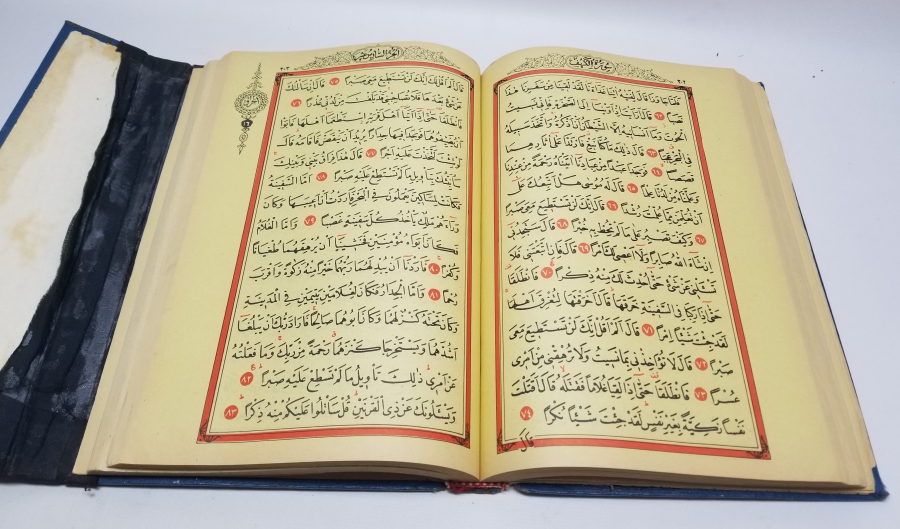 سُورَةُ الْكَهْفِ
فَلَمَّا جَاوَزَا قَالَ لِفَتٰيهُ اٰتِنَا غَدَٓاءَنَا لَقَدْ لَقِينَا مِنْ سَفَرِنَا هٰذَا
نَصَبًا ٦٢ قَالَ اَرَاَيْتَ اِذْ اَوَيْنَٓا اِلَى الصَّخْرَةِ فَاِنِّي نَسِيتُ
الْحُوتَ وَمَٓا اَنْسَانِيهُ اِلَّا الشَّيْطَانُ اَنْ اَذْكُرَهُ وَاتَّخَذَ سَبِيلَهُ
فِي الْبَحْرِ عَجَبًا ٦٣ قَالَ ذٰلِكَ مَا كُنَّا نَبْغِ فَارْتَدَّا عَلٰٓى اٰثَارِهِمَا
قَصَصًا ٦٤ فَوَجَدَا عَبْدًا مِنْ عِبَادِنَٓا اٰتَيْنَاهُ رَحْمَةً مِنْ عِنْدِنَا
وَعَلَّمْنَاهُ مِنْ لَدُنَّا عِلْمًا ٦٥ قَالَ لَهُ مُوسٰى هَلْ اَتَّبِعُكَ عَلٰٓى
اَنْ تُعَلِّمَنِ مِمَّا عُلِّمْتَ رُشْدًا ٦٦ قَالَ اِنَّكَ لَنْ تَسْتَطِيعَ مَعِيَ صَبْرًا
٦٧ وَكَيْفَ تَصْبِرُ عَلٰى مَا لَمْ تُحِطْ بِهِ خُبْرًا ٦٨ قَالَ سَتَجِدُنِٓي
اِنْ شَٓاءَ اللّٰهُ صَابِرًا وَلَٓا اَعْصِي لَكَ اَمْرًا ٦٩ قَالَ فَاِنِ اتَّبَعْتَنِي فَلَا
تَسْئَلْنِي عَنْ شَيْءٍ حَتّٰٓى اُحْدِثَ لَكَ مِنْهُ ذِكْرًا ٧٠ فَانْطَلَقَا
حَتّٰٓى اِذَا رَكِبَا فِي السَّفِينَةِ خَرَقَهَا قَالَ اَخَرَقْتَهَا لِتُغْرِقَ اَهْلَهَا
لَقَدْ جِئْتَ شَيْئًا اِمْرًا ٧١ قَالَ اَلَمْ اَقُلْ اِنَّكَ لَنْ تَسْتَطِيعَ مَعِيَ
صَبْرًا ٧٢ قَالَ لَا تُؤَاخِذْنِي بِمَا نَسِيتُ وَلَا تُرْهِقْنِي مِنْ اَمْرِي
عُسْرًا ٧٣ فَانْطَلَقَا حَتّٰٓى اِذَا لَقِيَا غُلَامًا فَقَتَلَهُ قَالَ اَقَتَلْتَ
نَفْسًا زَكِيَّةً بِغَيْرِ نَفْسٍ لَقَدْ جِئْتَ شَيْئًا نُكْرًا ٧٤
قَالَ
اَلْجُزْءُ السَّادِسَ عَشَرَ
قَالَ اَلَمْ اَقُلْ لَكَ اِنَّكَ لَنْ تَسْتَطِيعَ مَعِيَ صَبْرًا ٧٥ قَالَ اِنْ سَاَلْتُكَ
عَنْ شَيْءٍ بَعْدَهَا فَلَا تُصَاحِبْنِي قَدْ بَلَغْتَ مِنْ لَدُنِّي عُذْرًا ٧٦
فَانْطَلَقَا حَتّٰٓى اِذَٓا اَتَيَٓا اَهْلَ قَرْيَةٍ اِسْتَطْعَمَٓا اَهْلَهَا فَاَبَوْا
اَنْ يُضَيِّفُوهُمَا فَوَجَدَا فِيهَا جِدَارًا يُرِيدُ اَنْ يَنْقَضَّ فَاَقَامَهُ قَالَ
لَوْ شِئْتَ لَتَّخَذْتَ عَلَيْهِ اَجْرًا ٧٧ قَالَ هٰذَا فِرَاقُ بَيْنِي وَبَيْنِكَ
سَاُنَبِّئُكَ بِتَأْوِيلِ مَا لَمْ تَسْتَطِعْ عَلَيْهِ صَبْرًا ٧٨ اَمَّا السَّفِينَةُ
فَكَانَتْ لِمَسَاكِينَ يَعْمَلُونَ فِي الْبَحْرِ فَاَرَدْتُ اَنْ اَعِيبَهَا وَكَانَ
وَرَٓاءَهُمْ مَلِكٌ يَأْخُذُ كُلَّ سَفِينَةٍ غَصْبًا ٧٩ وَاَمَّا الْغُلَامُ
فَكَانَ اَبَوَاهُ مُؤْمِنَيْنِ فَخَشِينَٓا اَنْ يُرْهِقَهُمَا طُغْيَانًا
وَكُفْرًا ٨٠ فَاَرَدْنَٓا اَنْ يُبْدِلَهُمَا رَبُّهُمَا خَيْرًا مِنْهُ زَكٰوةً وَاَقْرَبَ
رُحْمًا ٨١ وَاَمَّا الْجِدَارُ فَكَانَ لِغُلَامَيْنِ يَتِيمَيْنِ فِي الْمَدِينَةِ
وَكَانَ تَحْتَهُ كَنْزٌ لَهُمَا وَكَانَ اَبُوهُمَا صَالِحًا فَاَرَادَ رَبُّكَ اَنْ يَبْلُغَٓا
اَشُدَّهُمَا وَيَسْتَخْرِجَا كَنْزَهُمَا رَحْمَةً مِنْ رَبِّكَ وَمَا فَعَلْتُهُ
عَنْ اَمْرِي ذٰلِكَ تَأْوِيلُ مَا لَمْ تَسْطِعْ عَلَيْهِ صَبْرًا ٨٢
وَيَسْئَلُونَكَ عَنْ ذِي الْقَرْنَيْنِ قُلْ سَاَتْلُوا عَلَيْكُمْ مِنْهُ ذِكْرًا ٨٣